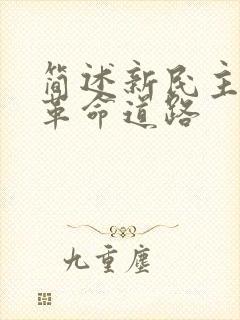 简述新民主
革命道路
九重尘